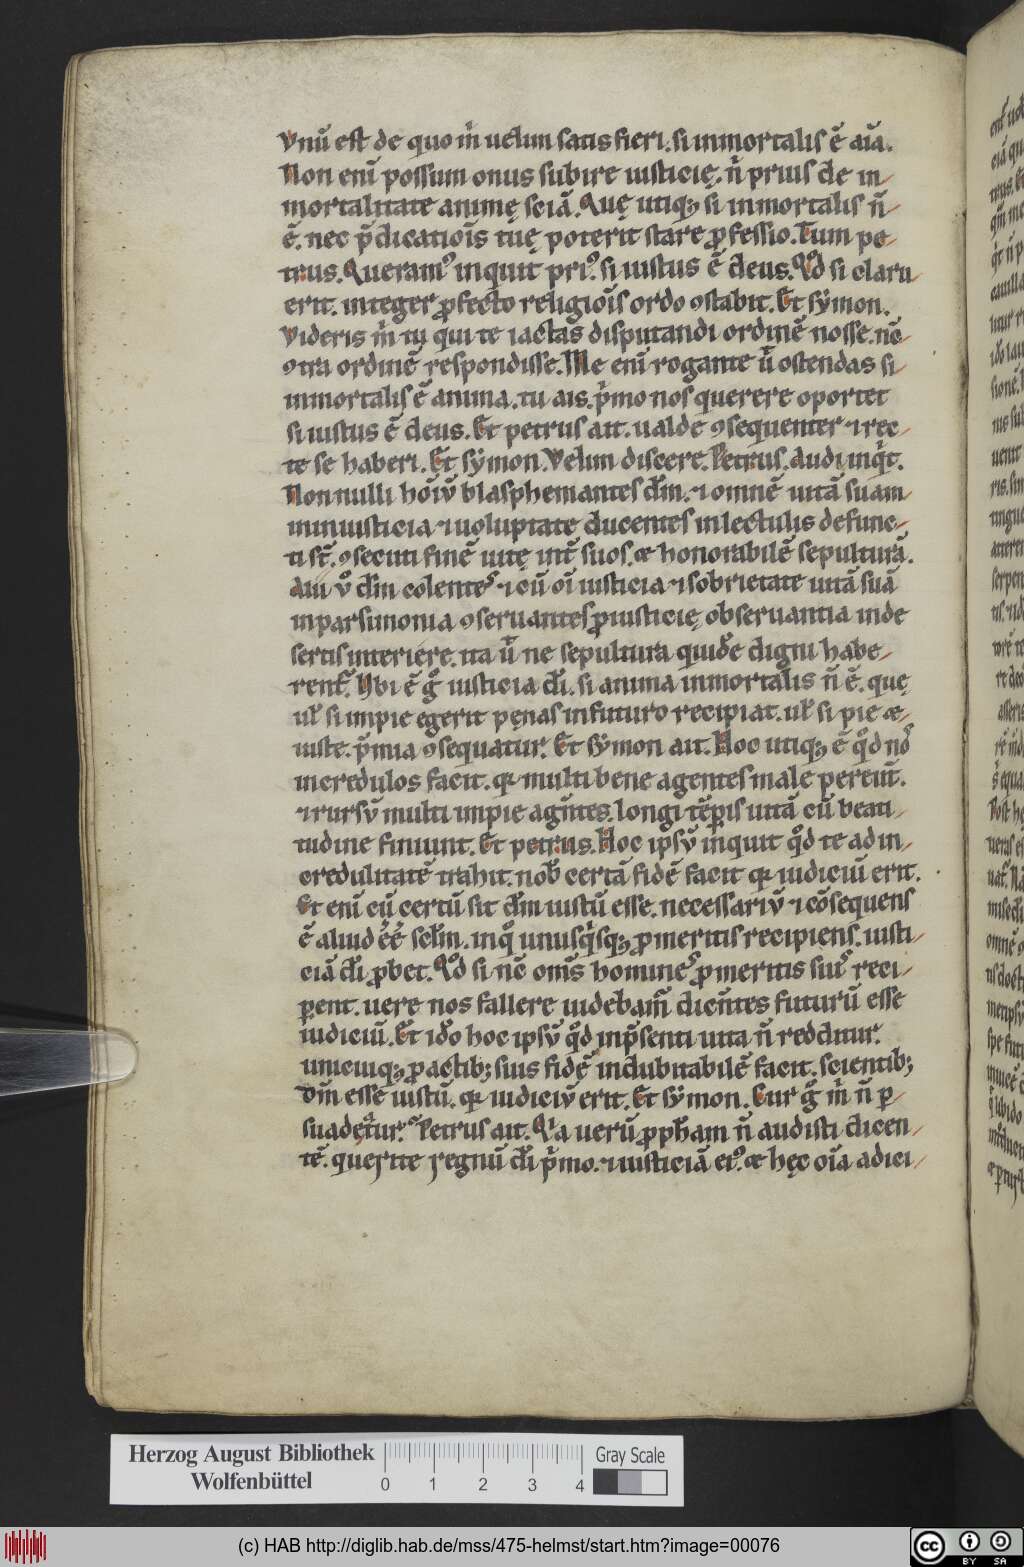 Vnū est de quo m̉ uelim satis fieri. si inmortalis ē aīa.
Non enī possum onus subire iusticię. n̉ prius de in
mortalitate animę sciā. Quę utiq; si inmortalis n̄
ē. nec p̄dicatiois tuę poterit stare ꝓfessio. Tum pe
trus. Queram᾽ inquit pri᾽. si iustus ē deus. Qd̊ si claru
erit. integer ꝓfecto religiōis ordo ꝯstabit. Et symon.
Videris m̉ tu qui te iactas disputandi ordinē nosse. nc̄
ꝯtra ordinē respondisse. Me enī rogante ū ostendas si
inmortalis ē anima. tu ais. p̉mo nos querere oportet
si iustus ē deus. Et petrus ait. ualde ꝯsequenter ⁊ rec
te se haberi. Et symon. Velim discere. Petrus. Audi inq̉t.
Non nulli hoīū blasphemantes dm̄. ⁊ omnē uitā suam
in iniusticia ⁊ uoluptate ducentes in lectulis defunc
ti st̄. ꝯsecuti finē uitę int̄ suos. & honorabilē sepulturā.
Alii ů dm̄ colentes ⁊ cū oī iusticia ⁊ sobrietate uitā suā
in parsimonia ꝯseruantes ꝓ iusticię obseruantia in de
sertis interiere. ita ū ne sepultura quidē digni habe
rent̄. Vbi ē g̊ iusticia dī. si anima inmortalis n̄ ē. quę
ul̄ si impie egerit pęnas in futuro recipiat. ul̄ si pie &
iuste. p̄mia ꝯsequatur. Et symon ait. Hoc utiq; ē qd̊ nos
incredulos facit. q̛ multi bene agentes male pereūt.
⁊ rursū multi impie agn̄tes. longi tēpis uitā cū beati
tudine finiunt. Et petrus. Hoc ipsū inquit qd̊ te ad in
credulitatē trahit. nob̄ certā fidē facit q̛ iudiciū erit.
Et enī cū certū sit dm̄ iustū esse. necessariū ⁊ cōsequens
ē aliud ēē sclm̄. in q̊ unusq̉sq; ꝓ meritis recipiens. iusti
ciā dī ꝓbet. Qd̊ si nc̄ om̄s homines ꝓ meritis suis reci
perent. uere nos fallere uidebam̄ dicn̄tes futurū esse
iudiciū. Et ido̊ hoc ipsū qd̊ in p̄senti uita n̄ redditur.
unicuiq; ꝓ actib; suis fidē indubitabilē facit. scientib;
dm̄ esse iustū. q̛ iudiciū erit. Et symon. Cur g̊ m̉ n̄ ꝑ
suadetur. Petrus ait. Qa uerū ꝓph̄am n̄ audisti dicen
tē. querite regnū dī p̉mo. ⁊ iusticiā ei᾽. & hęc oīa adici
Herzog August Bibliothek
Wolfenbüttel
0 1 2 3 4
Gray Scale
(c) HAB http://diglib.hab.de/mss/475-helmst/start.htm?image=00076
cc BY SA